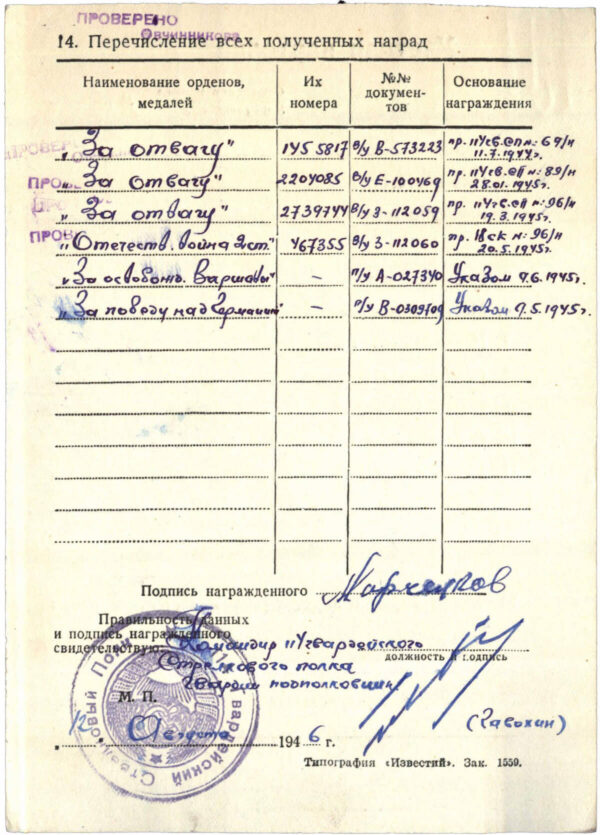 ПРОВЕРЕНО
Овчинникова
14. Перечисление всех полученных наград
Наименование орденов, медалей
Их номера
№№ документов
Основание награждения
„За отвагу" 145 5817 в/у В-573223 пр. 117гв.сп н: 69/н 11.7.1944г.
„За отвагу" 2204085 в/у Е-100469 пр. 117гв.сп н: 89/н 28.01.1945г.
„За отвагу" 2739744 в/у З-112059 пр. 117гв.сп н: 96/н 19.3.1945г.
„Отечеств. война 2 ст." 467355 в/у З-112060 пр. ск н: 96/н 20.5.1945г.
„За освобожд. Варшавы" – п/у А-027340 Указом 9.6.1945г.
„За победу над Германией" – п/у В-0309709 Указом 9.5.1945г.
Подпись награжденного
Правильность данных
и подпись награжденного
свидетельствую: Командир 117гвардейского
должность и подпись
Стрелкового полка
Гвардии подполковник
М. П.
12 Августа 1946 г.
Типография «Известий». Зак. 1559.